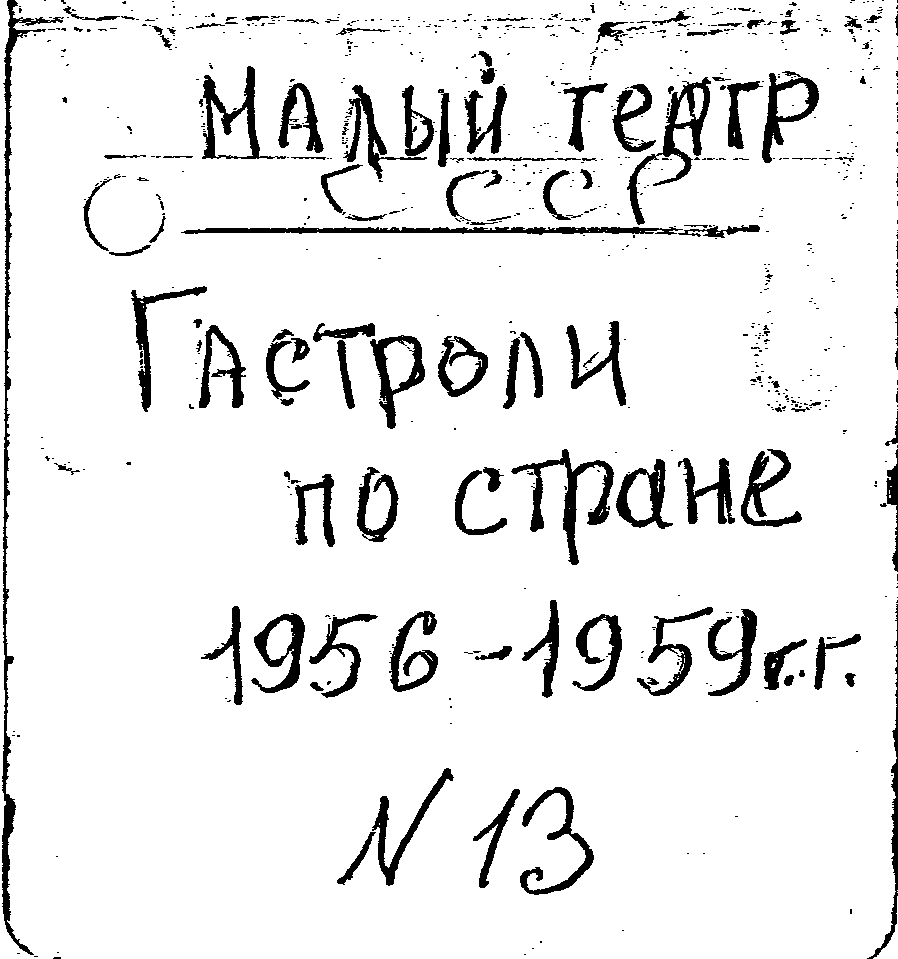 Малый театр
СССР
Гастроли
по стране
1956-1959г.г.
N 13